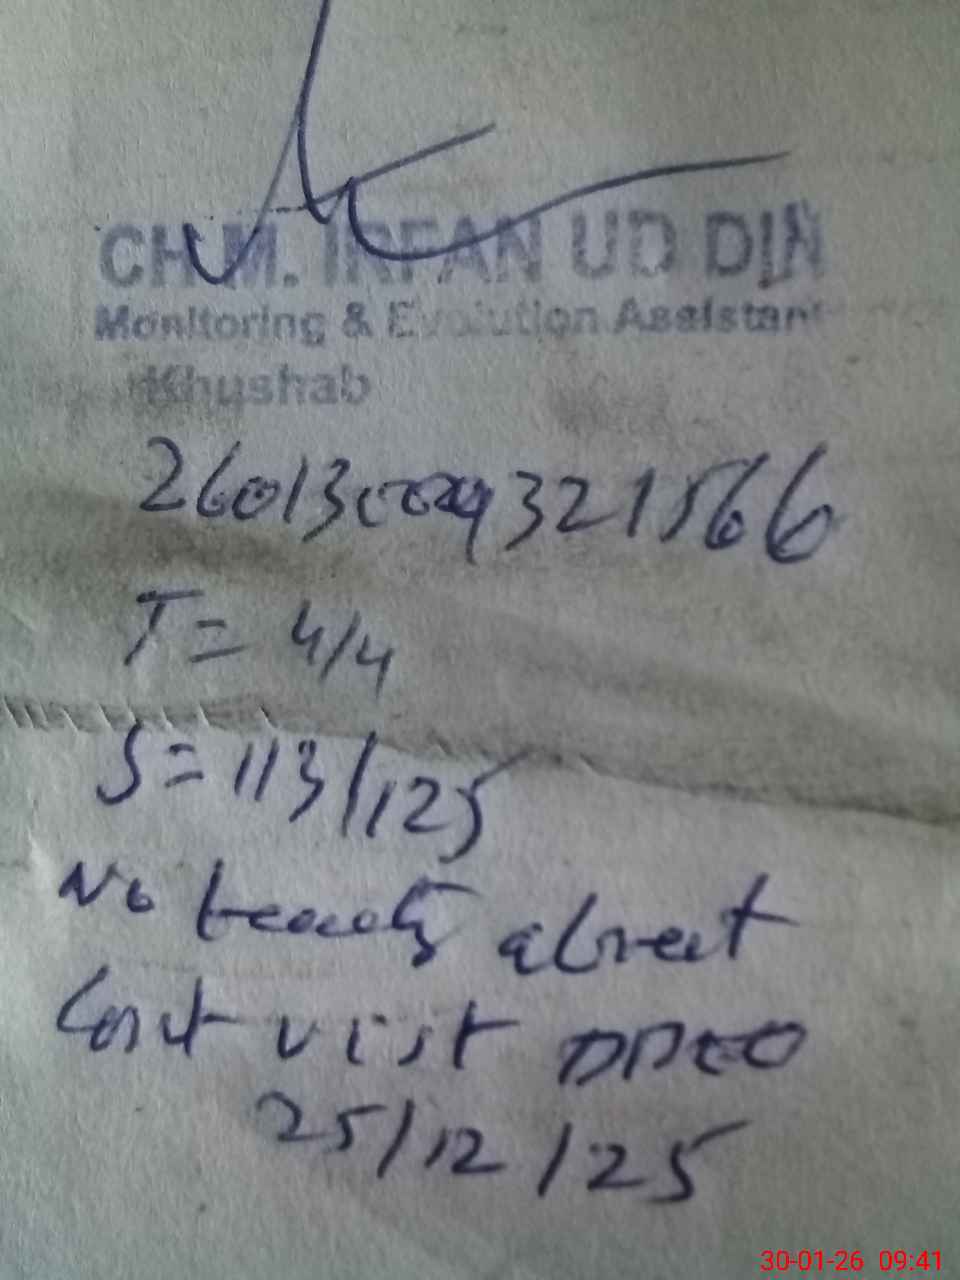 CH.M. IRFAN UD DIN
Monitoring & Evolution Assistant
Khushab
T = 4/4
S = 113/125
No absent
visit DDEO
25/12/25
30-01-26 09:41